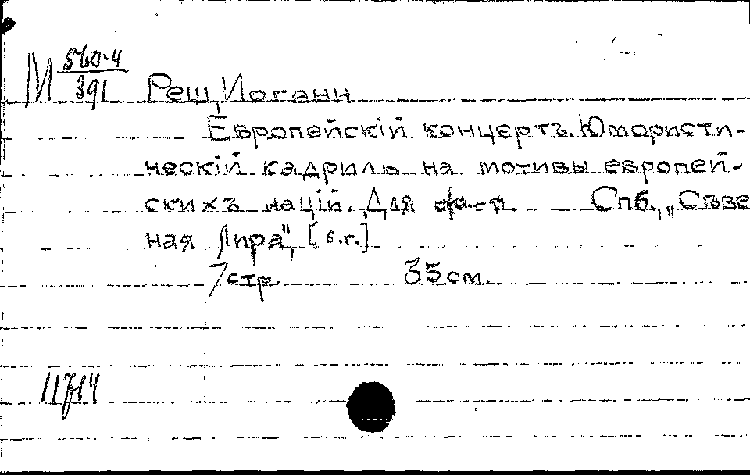 М 560-4
391
Реш, Иоганн
Европейскiй концертъ. Юмористи-
ческiй кадриль на мотивы европей-
скихъ нацiй. Для ф-п. Спб., „Съве
ная Лира", [б.г.]
7 стр. 35 см.
11714